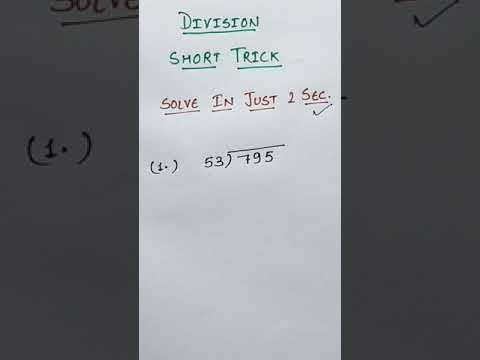 DIVISION
SHORT TRICK
SOLVE IN JUST 2 SEC.
(1.) 53)795
(1.)